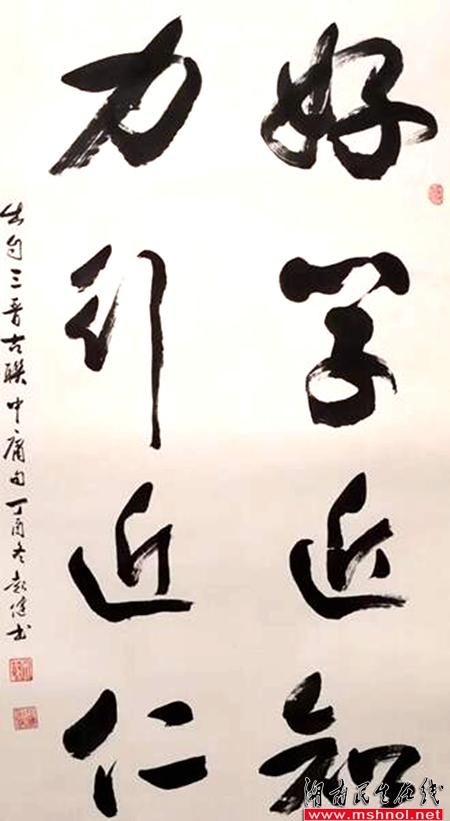 好学近知
力行近仁
出句三晋古联中庸句丁酉冬彭健书
湖南民生在线
www.mshnol.net